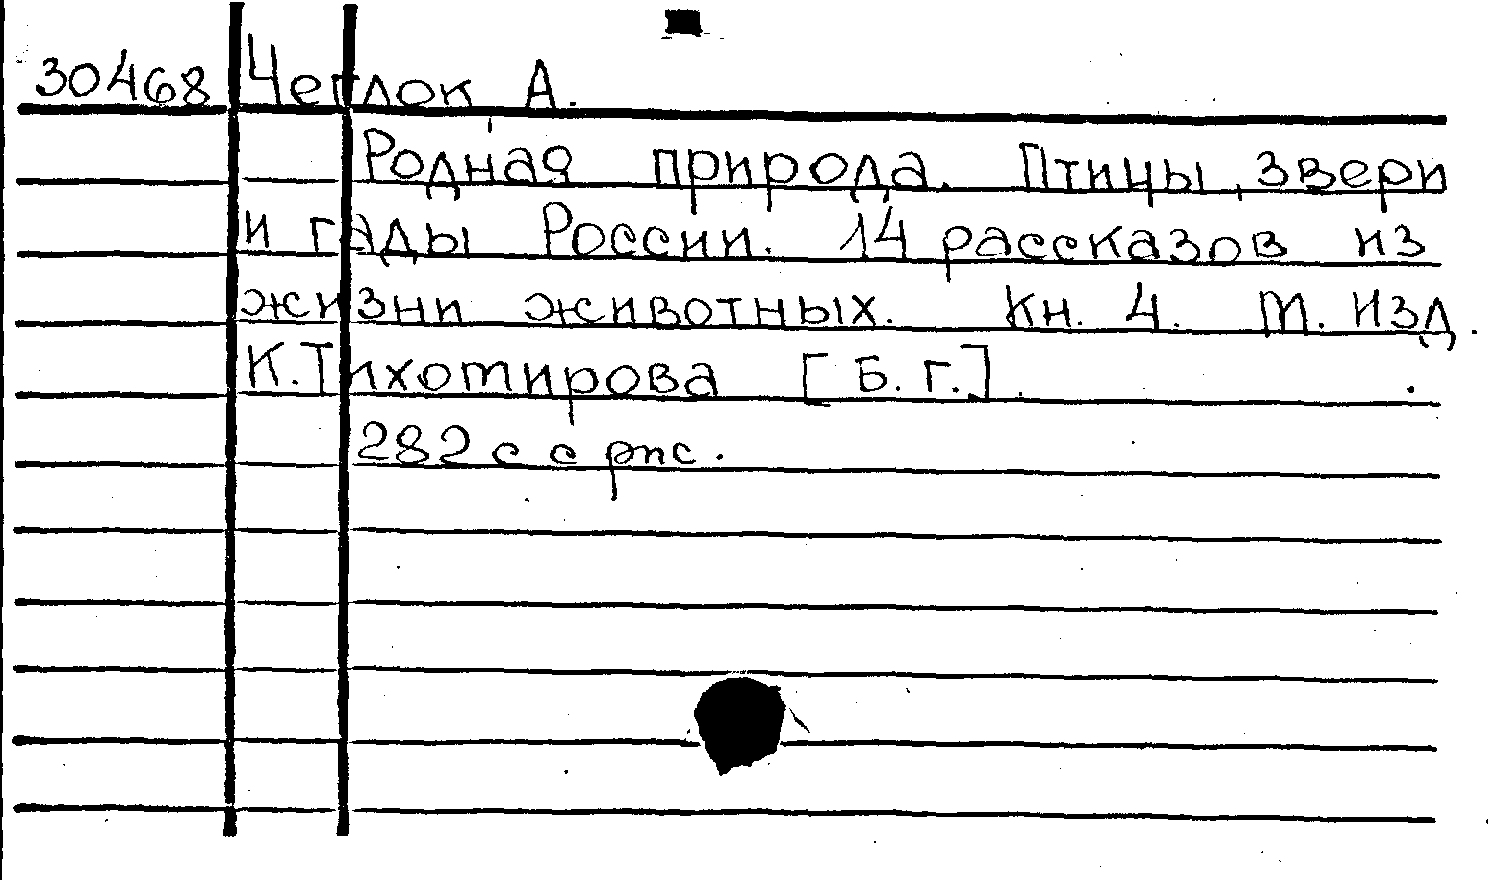 30468 Чеглок А.
Родная природа. Птицы, звери
и гады России. 14 рассказов из
жизни животных. Кн. 4. М. Изд.
К. Тихомирова [Б. г.].
282 с с рис.